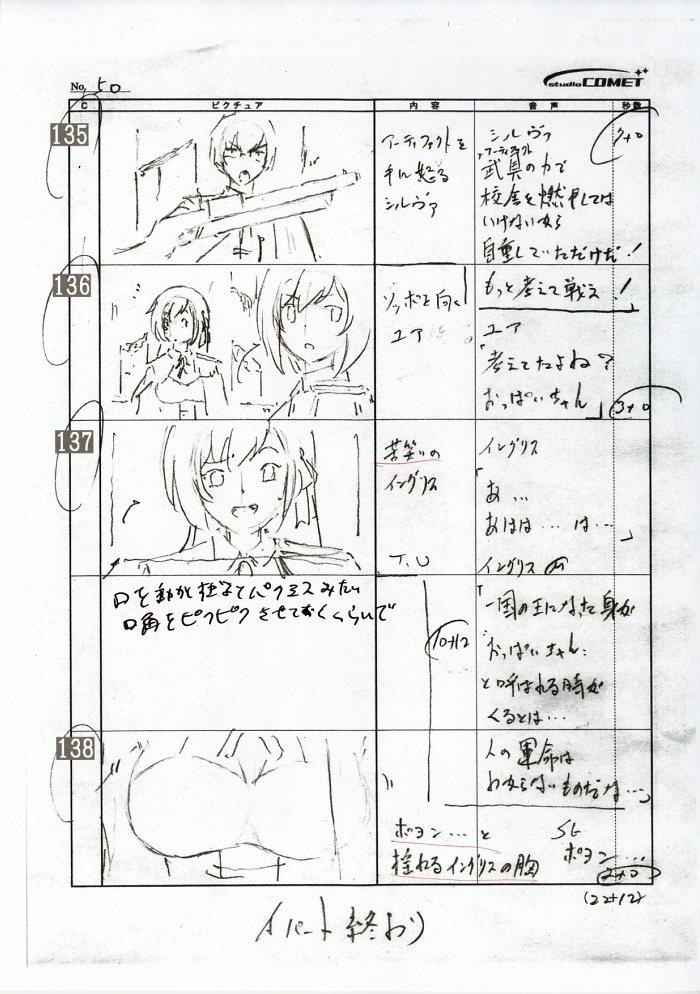 No. 50
studio COMET
C ピクチュア 内容 音声 秒数
135
アーティファクトを
手に怒る
シルヴァ
シルヴァ
アーティファクト
「武具の力で
校舎を燃やしては
いけないから
自重していただけだ!
136
ソッポを向く
ユア
もっと考えて戦え!」
ユア
「考えてたよね?
おっぱいちゃん」
3+0
137
苦笑いの
イングリス
T.U
イングリス
「あ…
あはは…は…」
イングリス
口を動かす
口角をピクピクさせておくくらいで
10+12
「一国の王になった身が
おっぱいちゃん
と呼ばれる時が
くるとは…
138
人の運命は
わからないものだな…」
ボヨン…と
揺れるイングリスの胸
SE
ボヨン…
2+0
(22+12)
Aパート終わり